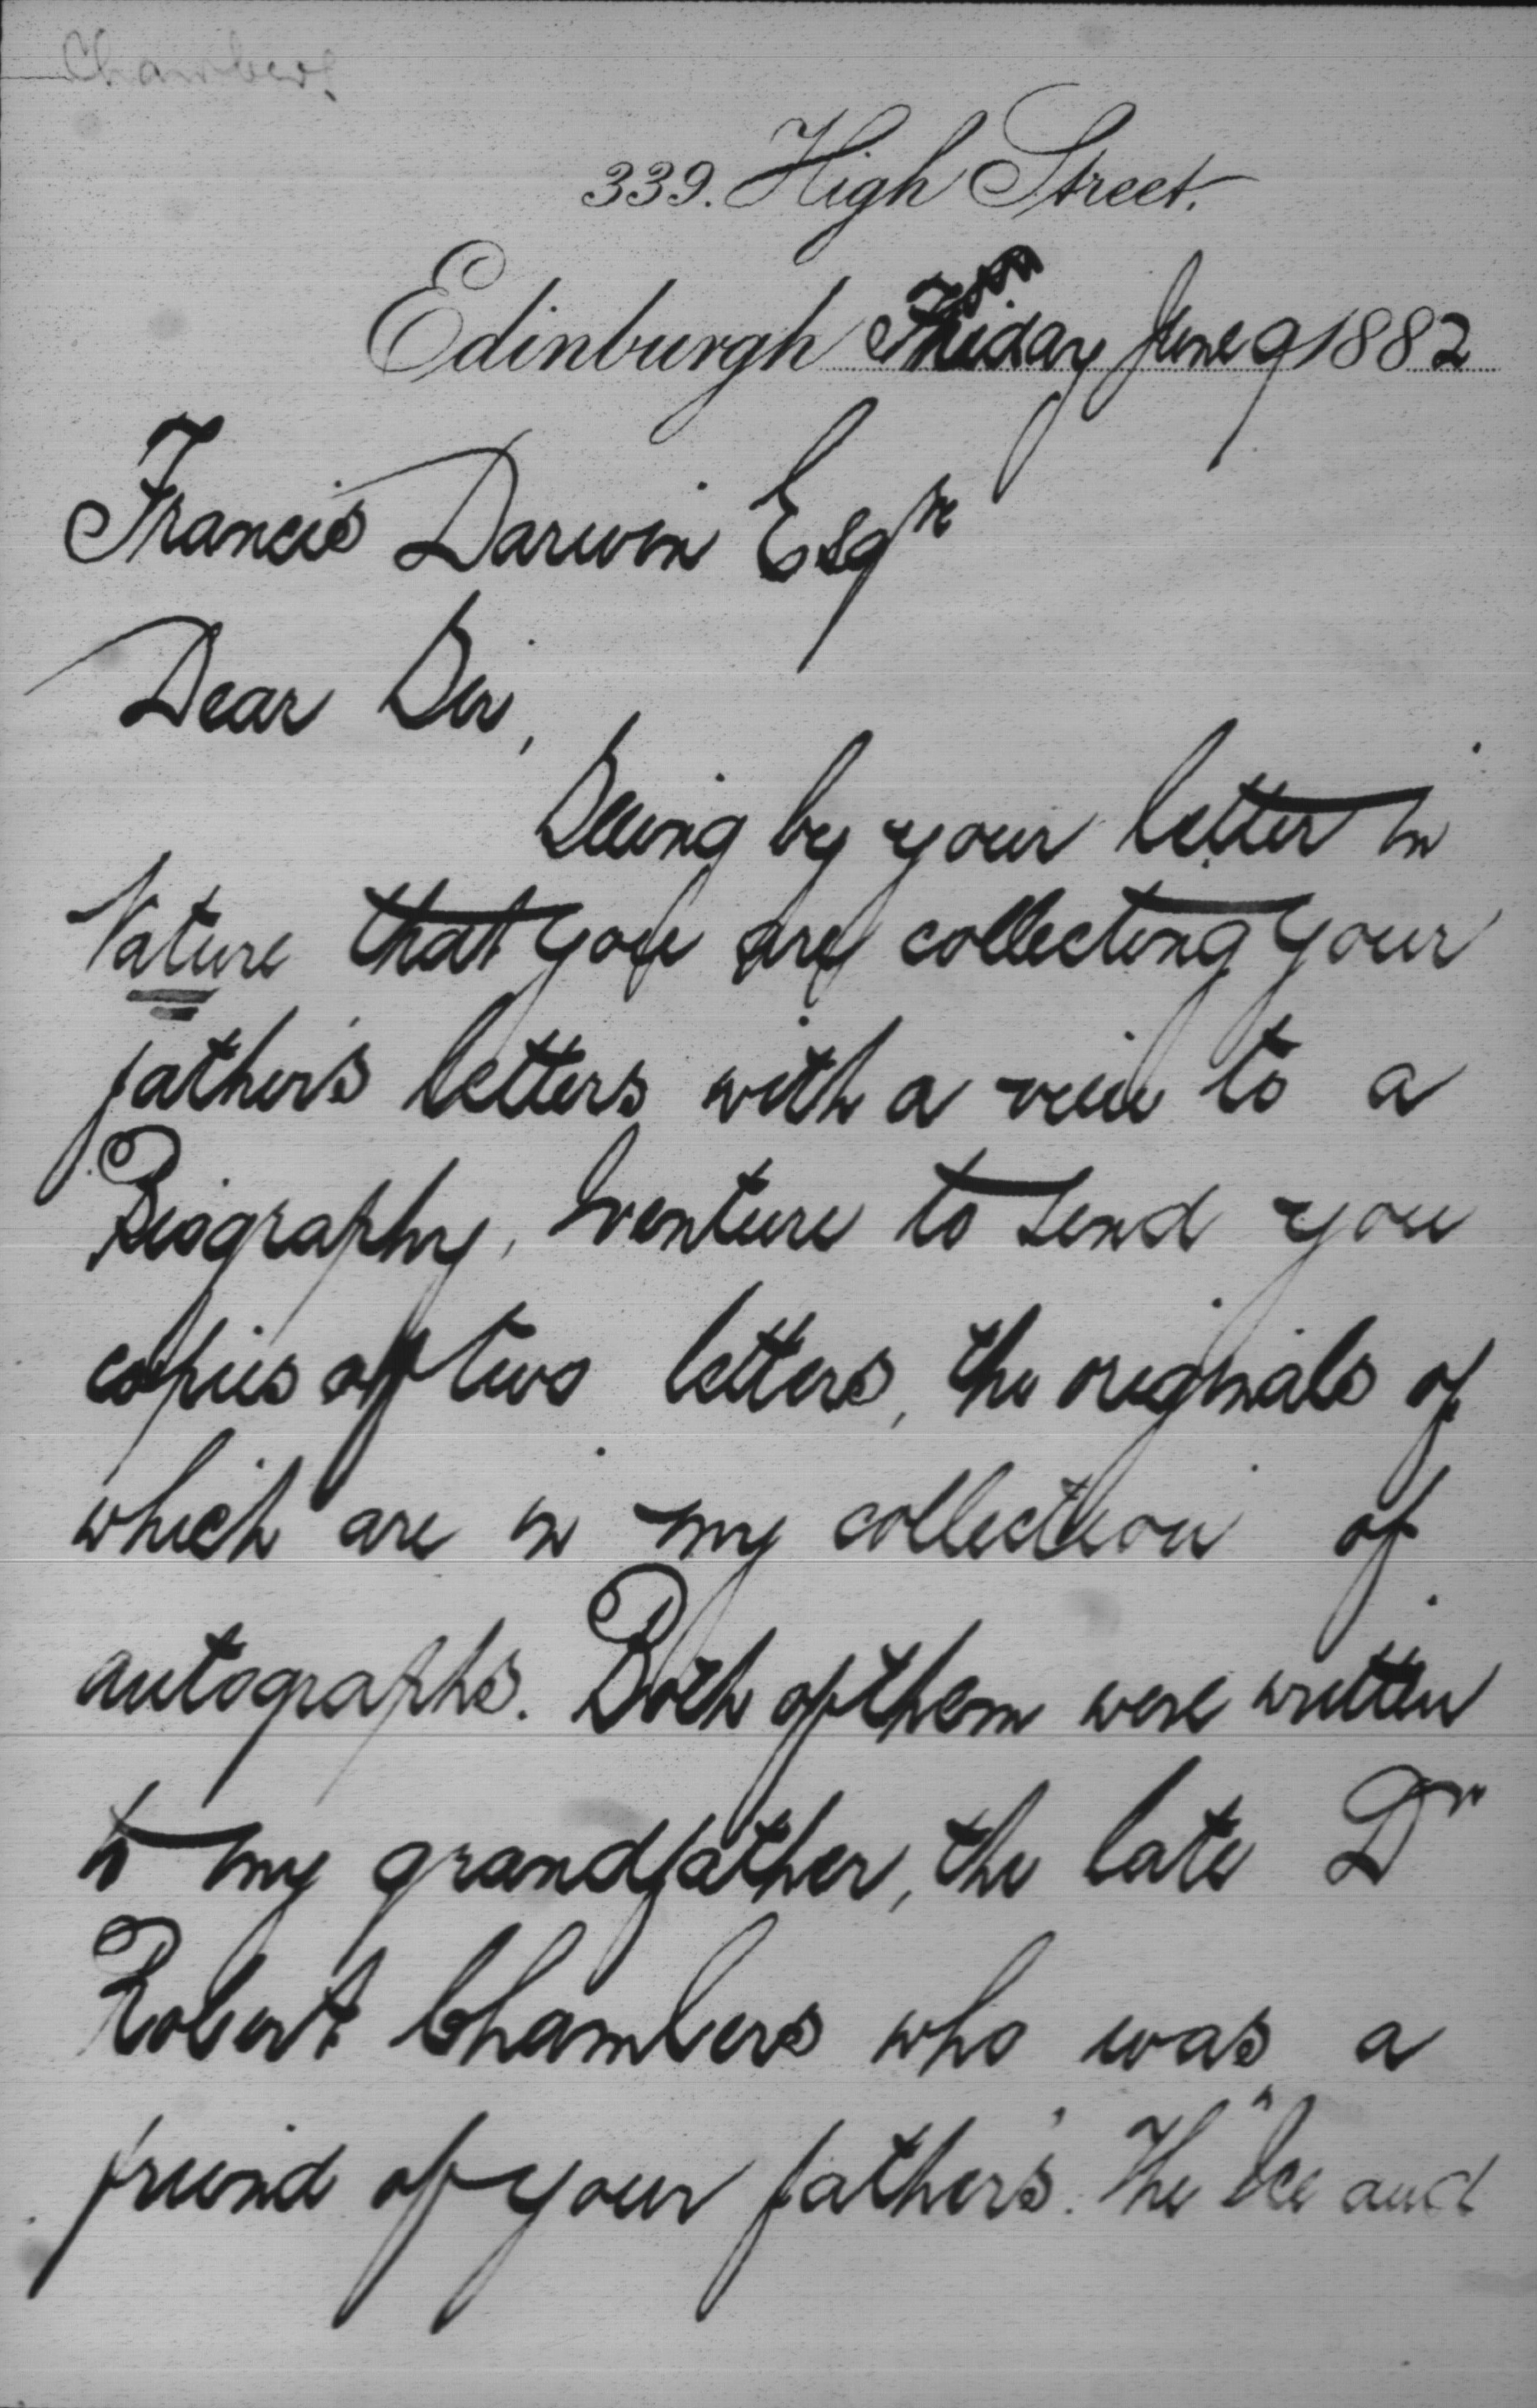 Chambers
339. High Street.
Edinburgh Friday June 9 1882
Francis Darwin Esqre
Dear Sir,
Seeing by your letter in
Nature that you are collecting your
father's letters with a view to a
Biography, I venture to send you
copies of two letters, the originals of
which are in my collection of
autographs. Both of them were written
to my grandfather, the late Dr
Robert Chambers who was a
friend of your father's. The "Ice and